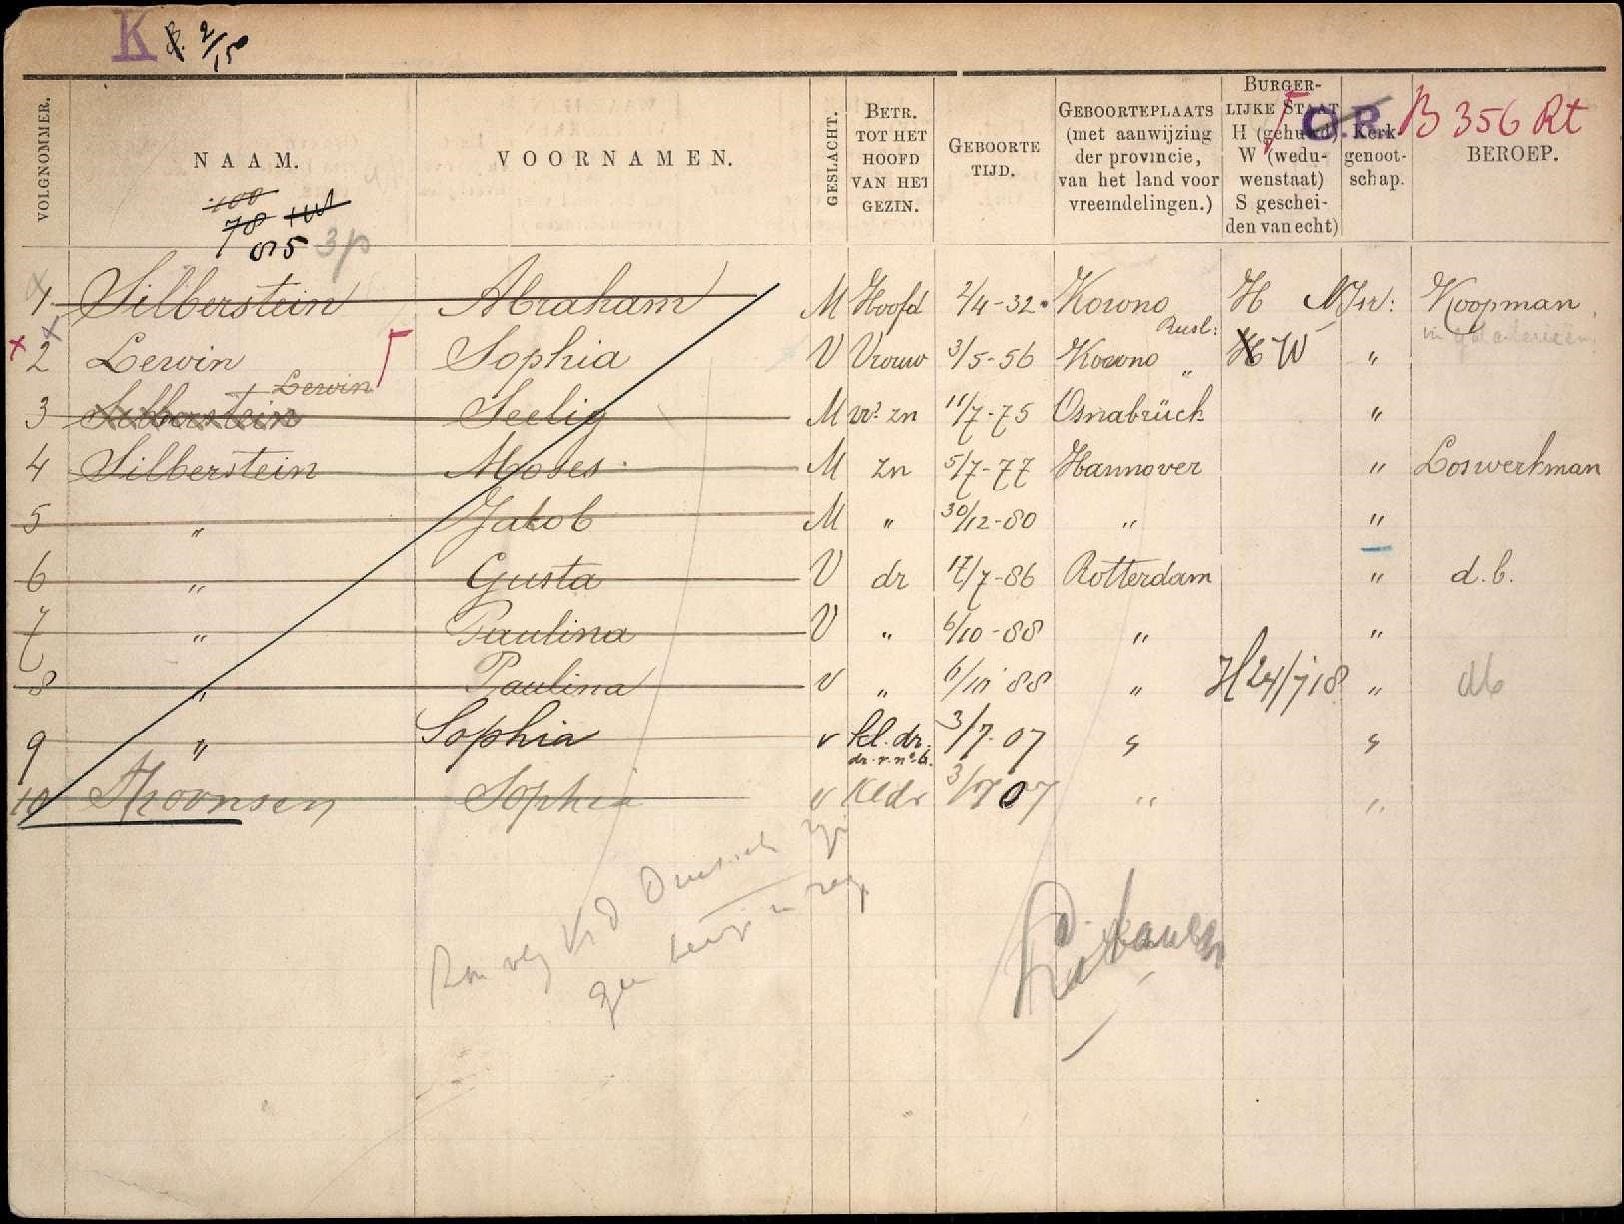 K 2/15
VOLGNOMMER. NAAM. VOORNAMEN. GESLACHT. BETR. TOT HET HOOFD VAN HET GEZIN. GEBOORTE TIJD. GEBOORTEPLAATS (met aanwijzing der provincie, van het land voor vreemdelingen.) BURGERLIJKE STAAT H (gehuwd) W (weduwenstaat) S gescheiden van echt) Kerkgenootschap. BEROEP.
O.R. B 356 Rt
100
78
85 3p
1 Silberstein Abraham M Hoofd 2/4-32 Kowno Rusl: H N Isr: Koopman
2 Lewin Sophia V Vrouw 3/5-56 Kowno " H W "
Lewin
3 Silberstein Seelig M vr. zn 11/7-75 Osnabrück "
4 Silberstein Moses M zn 5/7-77 Hannover " Loswerkman
5 " Jakob M " 30/12-80 " "
6 " Gusta V dr 17/7-86 Rotterdam " d.b.
7 " Paulina V " 6/10-88 " "
8 " Paulina v " 6/10 88 " H 24/7 18 "
9 " Sophia v kl. dr. 3/7-07 " "
dr. v. no. 6.
10 Sophia v kldr 3/7 07 " "